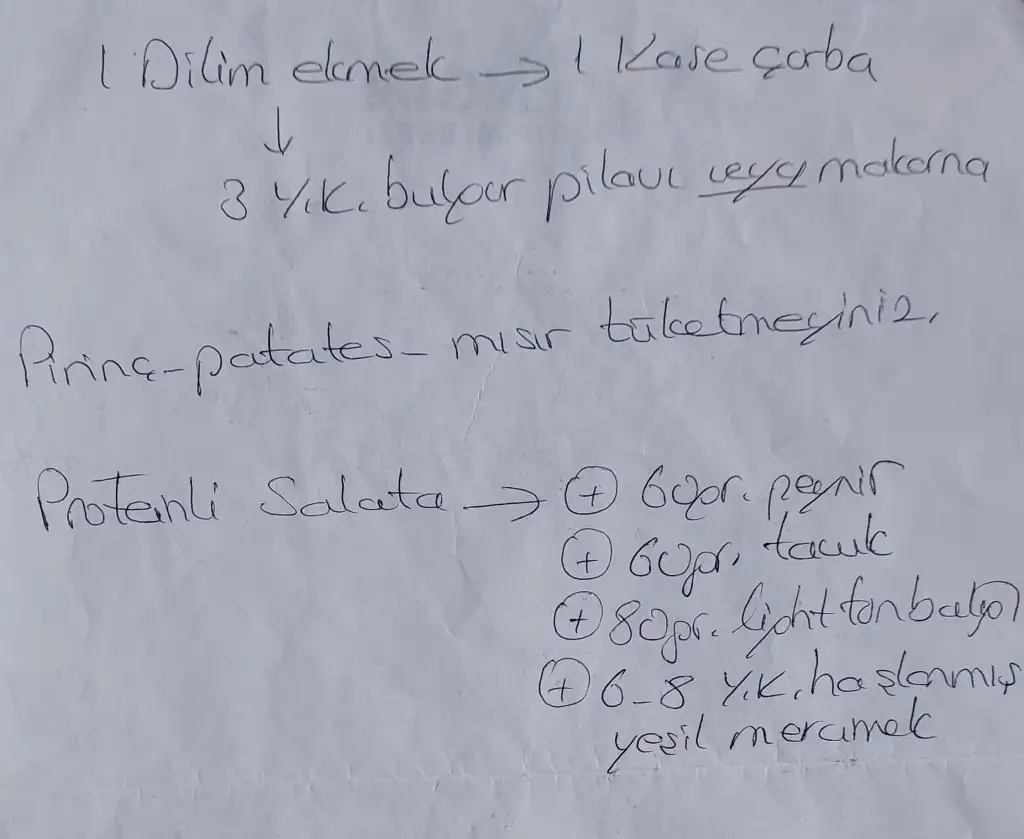 1 Dilim ekmek → 1 Kase çorba
↓
3 Y.K. bulgur pilavı veya makarna
Pirinç - patates - mısır tüketmeyiniz.
Proteinli Salata → + 60gr. peynir
+ 60gr. tavuk
+ 80gr. light ton balığı
+ 6-8 Y.K. haşlanmış
yeşil mercimek